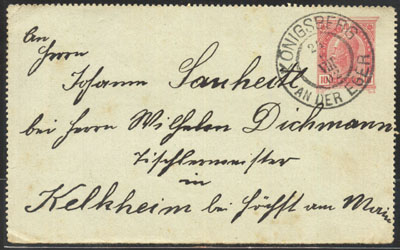 An
Herrn
Johann Sauheitl
bei Herrn Wilhelm Dichmann
Tischlermeister
in
Kelkheim bei Höchst am Main
KÖNIGSBERG
AN DER EGER
VIII
10